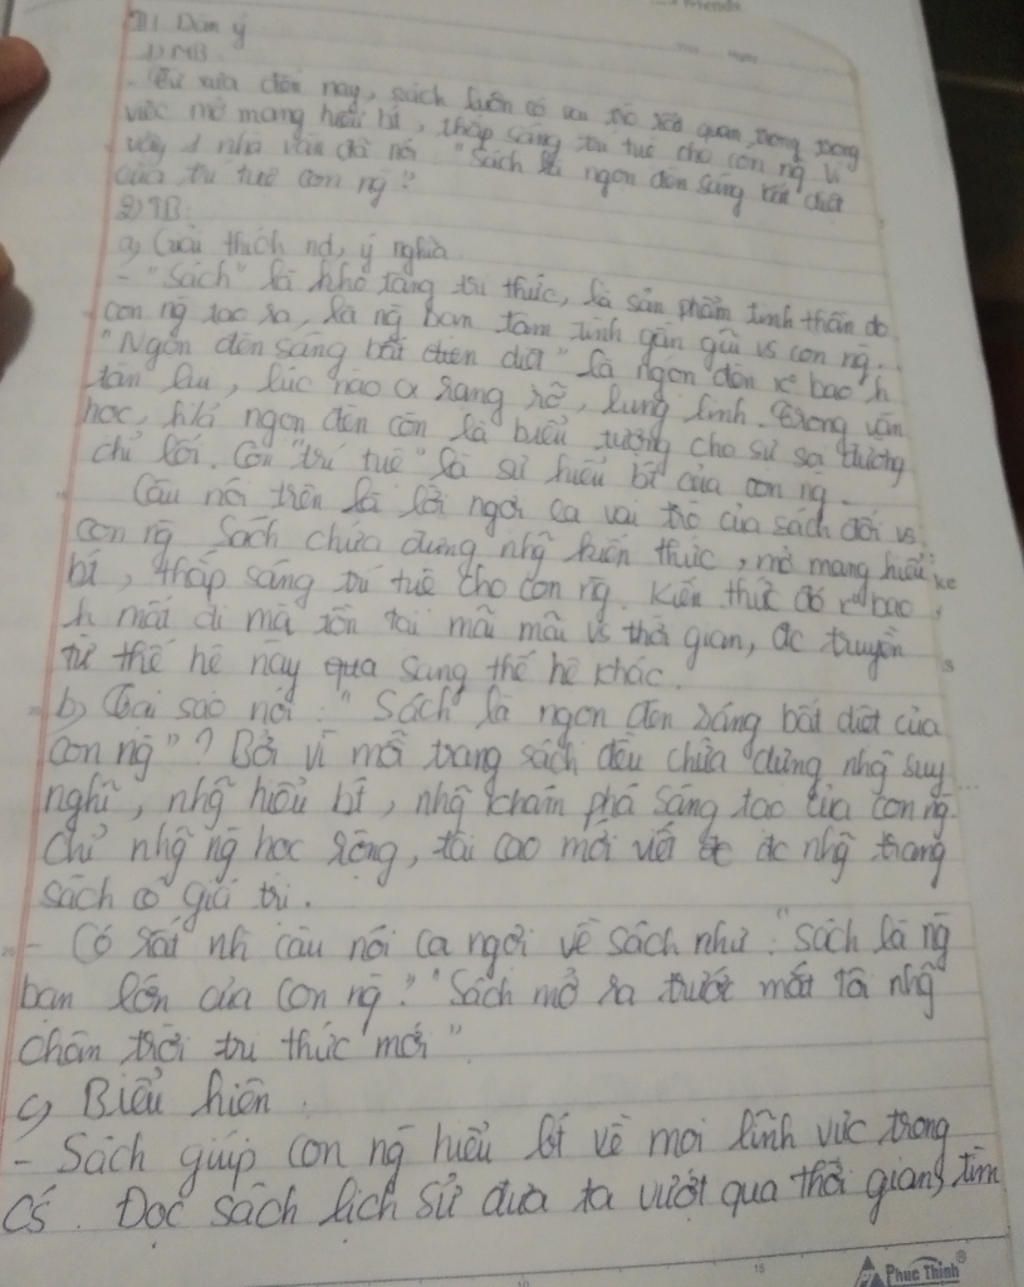 II) Dàn ý
1) MB
- Từ xưa đến nay, sách luôn có vai trò rất quan trọng trong
việc mở mang hiểu bt, thắp sáng trí tuệ cho con ng vì
vậy 1 nhà văn đã nói "Sách là ngọn đèn sáng bất diệt
của trí tuệ con ng?
2) TB:
a) Giải thích nd, ý nghĩa
- "Sách" là kho tàng tri thức, là sản phẩm tinh thần do
con ng tạo ra, là ng bạn tâm tình gần gũi vs con ng.
"Ngọn đèn sáng bất diệt" là ngọn đèn k bao h
tàn lụi, lúc nào cx rạng rỡ, lung linh. Trong văn
học, h/á ngọn đèn còn là biểu tượng cho sự soi đường
chỉ lối. Còn "trí tuệ" là sự hiểu bt của con ng.
Câu nói trên là lời ngợi ca vai trò của sách đối vs
con ng Sách chứa đựng nhg kiến thức, mở mang hiểu
bt, thắp sáng trí tuệ cho con ng. Kiến thức đó k bao
h mất đi mà tồn tại mãi mãi vs thời gian, đc truyền
từ thế hệ này qua sang thế hệ khác.
b) Tại sao nói: "Sách là ngọn đèn sáng bất diệt của
con ng"? Bởi vì mỗi trang sách đều chứa đựng nhg suy
nghĩ, nhg hiểu bt, nhg khám phá sáng tạo của con ng
Chỉ nhg ng học rộng, tài cao mới viết đc nhg trang
sách có giá trị.
- Có rất nh câu nói ca ngợi về sách như: "sách là ng
bạn lớn của con ng". "Sách mở ra trước mắt tôi nhg
chân trời tri thức mới"
c) Biểu hiện.
- Sách giúp con ng hiểu bt về mọi lĩnh vực trong
cs. Đọc sách lịch sử đưa ta vượt qua thời gian, tìm
Phuc Thinh